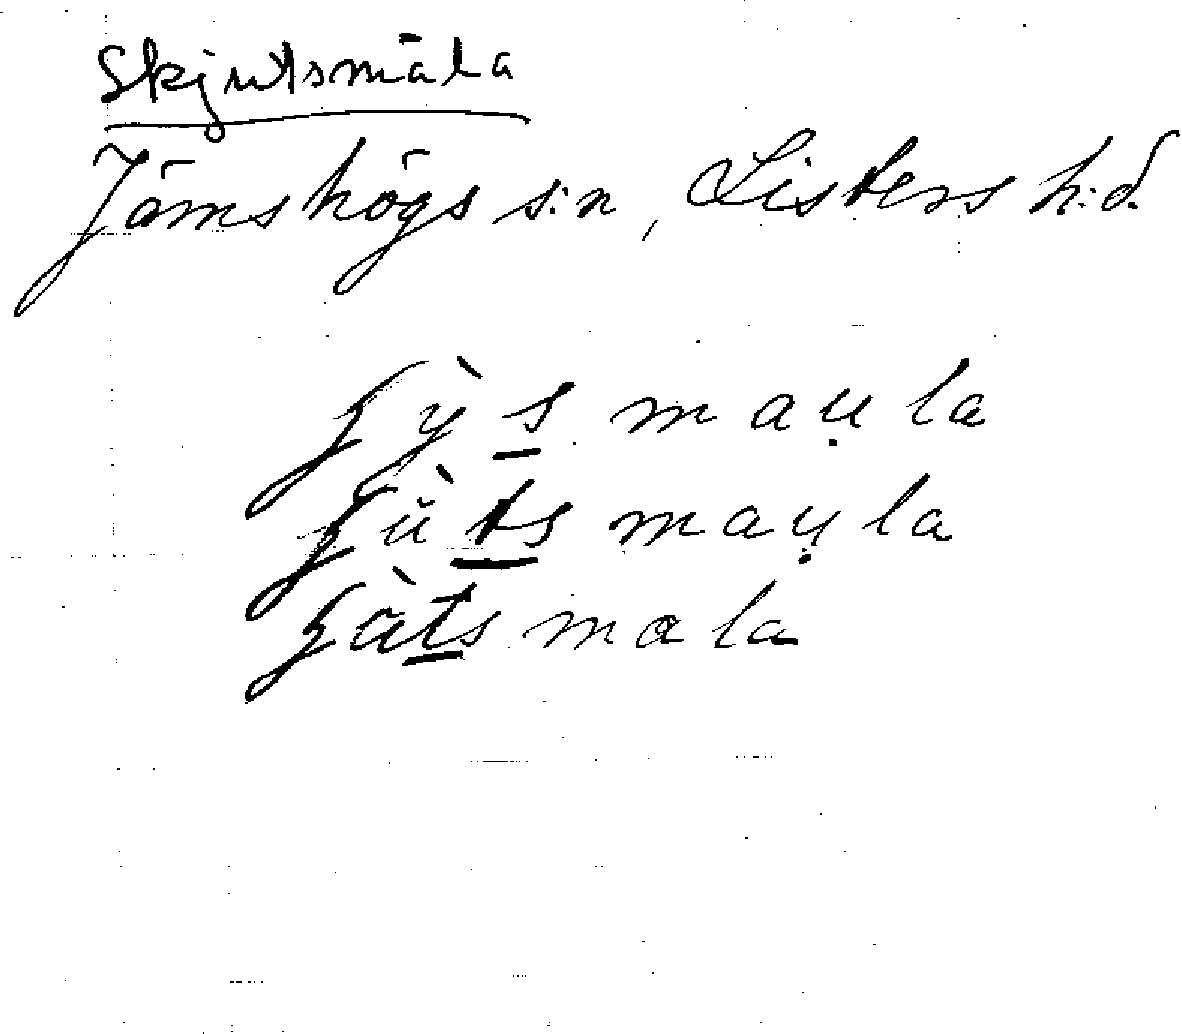 Skjutsmåla
Jämshögs s:n, Listers h:d.
ʃỳs mau̥la
ʃùts mau̥la
ʃàts måla